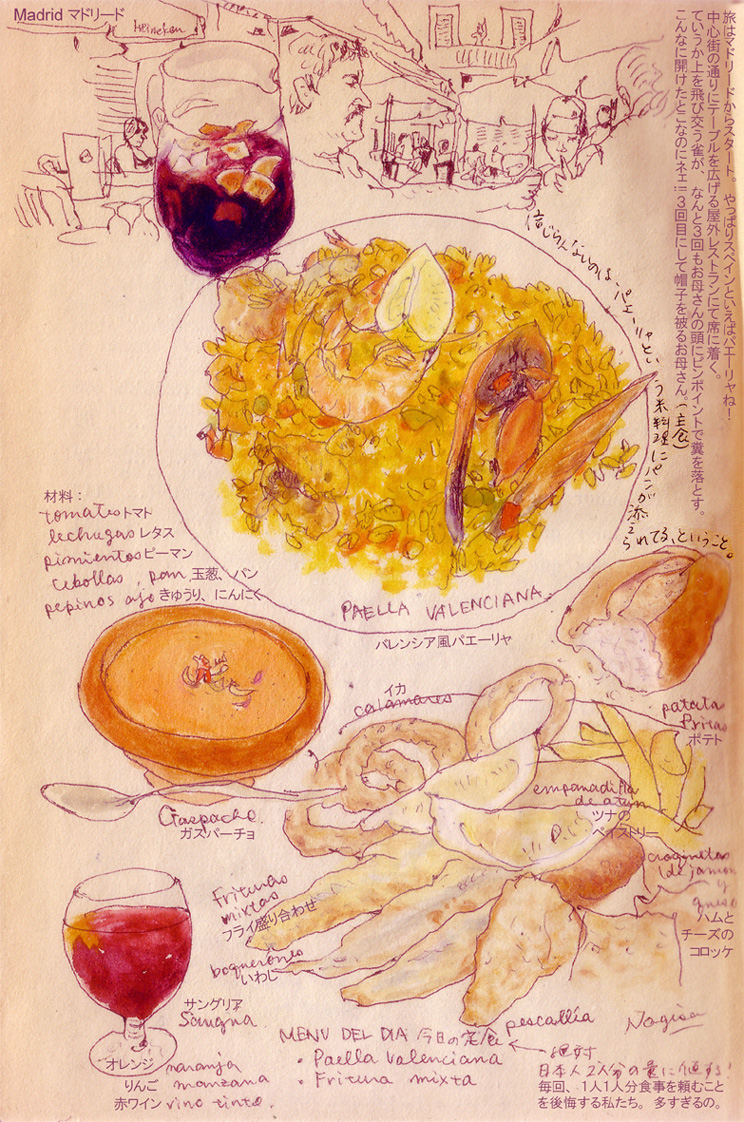 Madrid マドリード
Heineken
旅はマドリードからスタート。 やっぱりスペインといえばパエーリャね!
中心街の通りにテーブルを広げる屋外レストランにて席に着く。
ていうか上を飛び交う雀が、 なんと3回もお母さんの頭にピンポイントで糞を落とす。
こんなに開けたとこなのにネェ!! 3回目にして帽子を被るお母さん。
信じらんないのは、パエーリャという米料理にパンが添えられてる、ということ。
(主食)
材料:
tomates トマト
lechugas レタス
pimientos ピーマン
cebollas, pan 玉葱、パン
pepinos ajo きゅうり、にんにく
PAELLA VALENCIANA
バレンシア風パエーリャ
イカ
calamares
patata
fritas
ポテト
Gazpacho.
ガスパーチョ
empanadilla
de atun
ツナの
ペイストリー
croquetas
de jamon
y
queso
ハムと
チーズの
コロッケ
Frituras
mixtas
フライ盛り合わせ
boquerones
いわし
サングリア
Sangria
オレンジ naranja
りんご manzana
赤ワイン vino tinto.
pescadilla
Nagisa
MENU DEL DIA 今日の定食
・Paella Valenciana
・Fritura mixta
絶対
日本人2人分の量に値する!
毎回、1人1人分食事を頼むこと
を後悔する私たち。 多すぎるの。